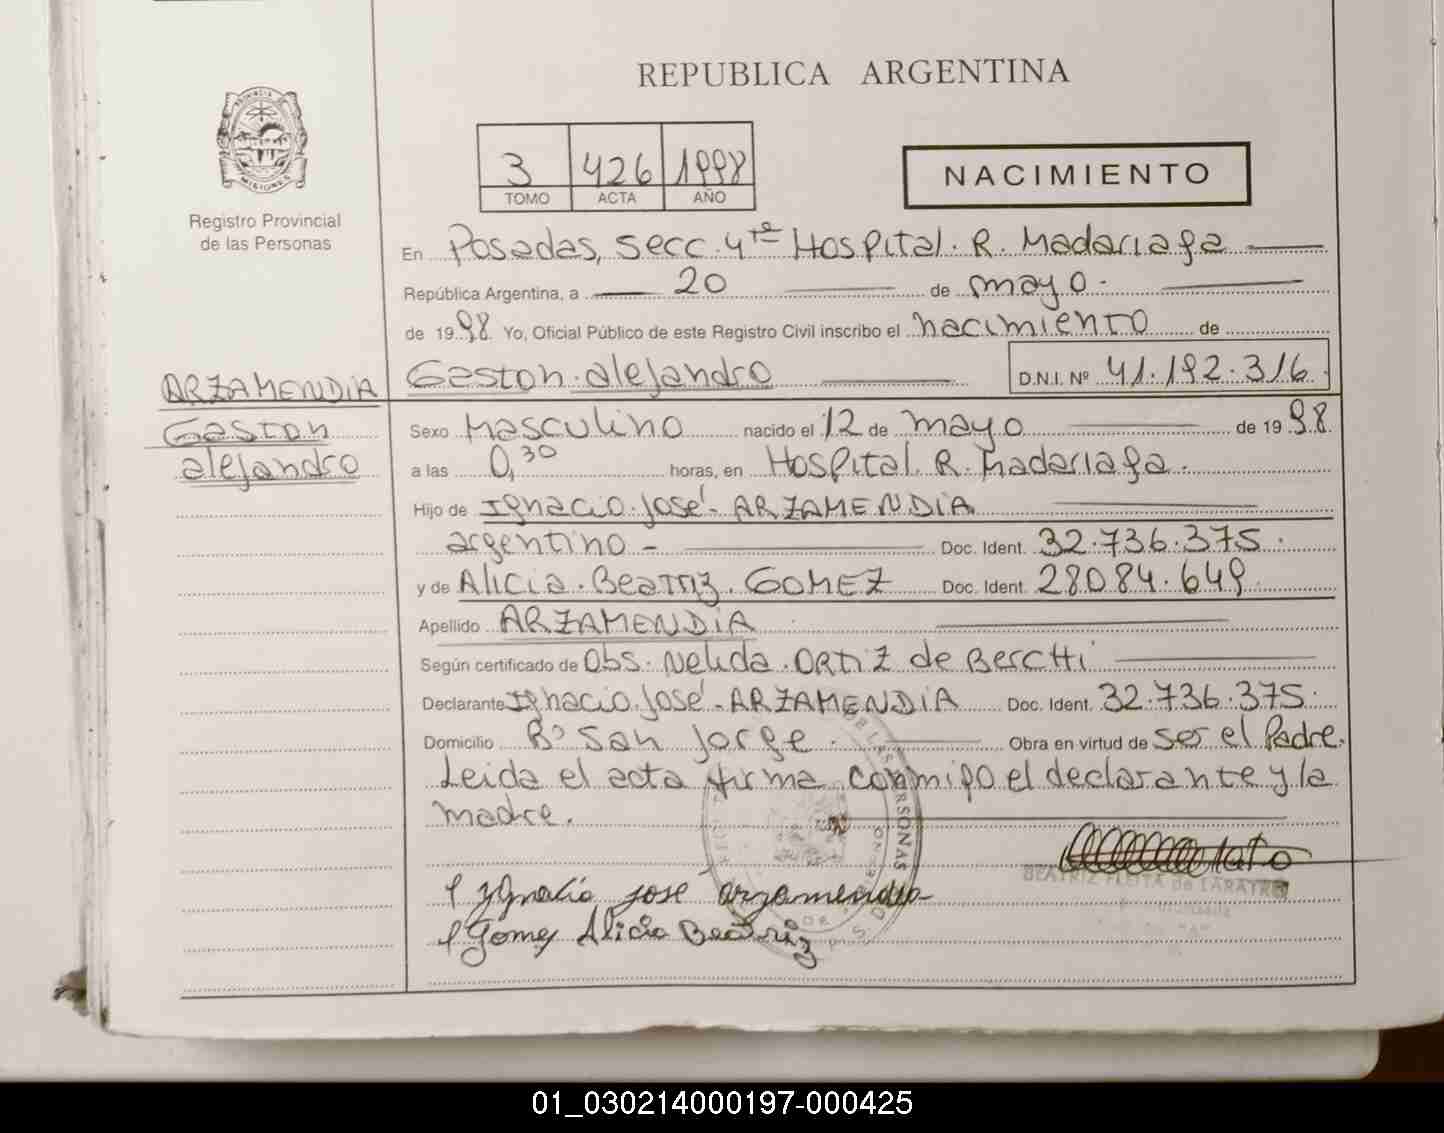 REPUBLICA ARGENTINA
PROVINCIA
MISIONES
Registro Provincial
de las Personas
3 426 1998
TOMO ACTA AÑO
NACIMIENTO
En Posadas, secc. 4ta Hospital. R. Madariaga
República Argentina, a 20 de mayo.
de 1998. Yo, Oficial Público de este Registro Civil inscribo el nacimiento de
Gaston. alejandro D.N.I. Nº 41.192.316
ARZAMENDIA
Gaston
alejandro
Sexo Masculino nacido el 12 de mayo de 1998.
a las 0,30 horas, en Hospital. R. Madariaga.
Hijo de Ignacio. José - ARZAMENDIA
argentino - Doc. Ident. 32.736.375.
y de Alicia. Beatriz. GOMEZ Doc. Ident. 28084.649.
Apellido ARZAMENDIA
Según certificado de Obs. Nelida. ORTIZ de Berchi
Declarante Ignacio. José - ARZAMENDIA Doc. Ident. 32.736.375.
Domicilio Bº San Jorge. Obra en virtud de ser el Padre.
Leida el acta firma conmigo el declarante y la
madre.
BEATRIZ FLEITA de LARATRO
Ignacio jose arzamendia
Gomez Alicia Beatriz
01_030214000197-000425